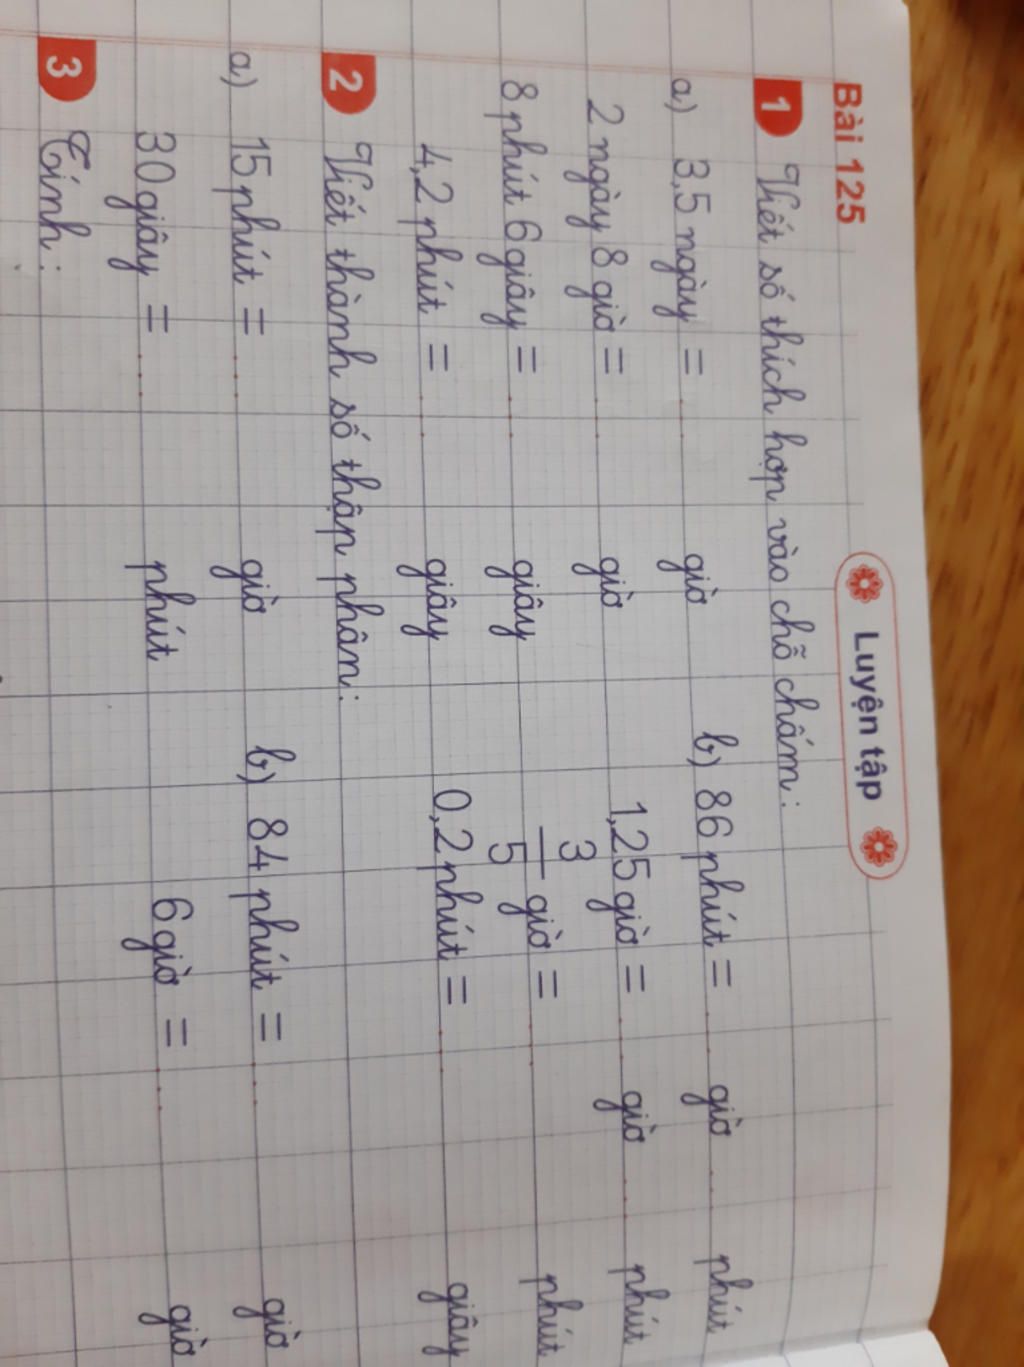 Bài 125
Luyện tập
1 Viết số thích hợp vào chỗ chấm:
a) 3,5 ngày = .... giờ b) 86 phút = .... giờ .... phút
2 ngày 8 giờ = .... giờ 1,25 giờ = .... giờ .... phút
8 phút 6 giây = .... giây 3/5 giờ = .... phút
4,2 phút = .... giây 0,2 phút = .... giây
2 Viết thành số thập phân:
a) 15 phút = .... giờ b) 84 phút = .... giờ
30 giây = .... phút 6 giờ = .... giờ
3 Tính: